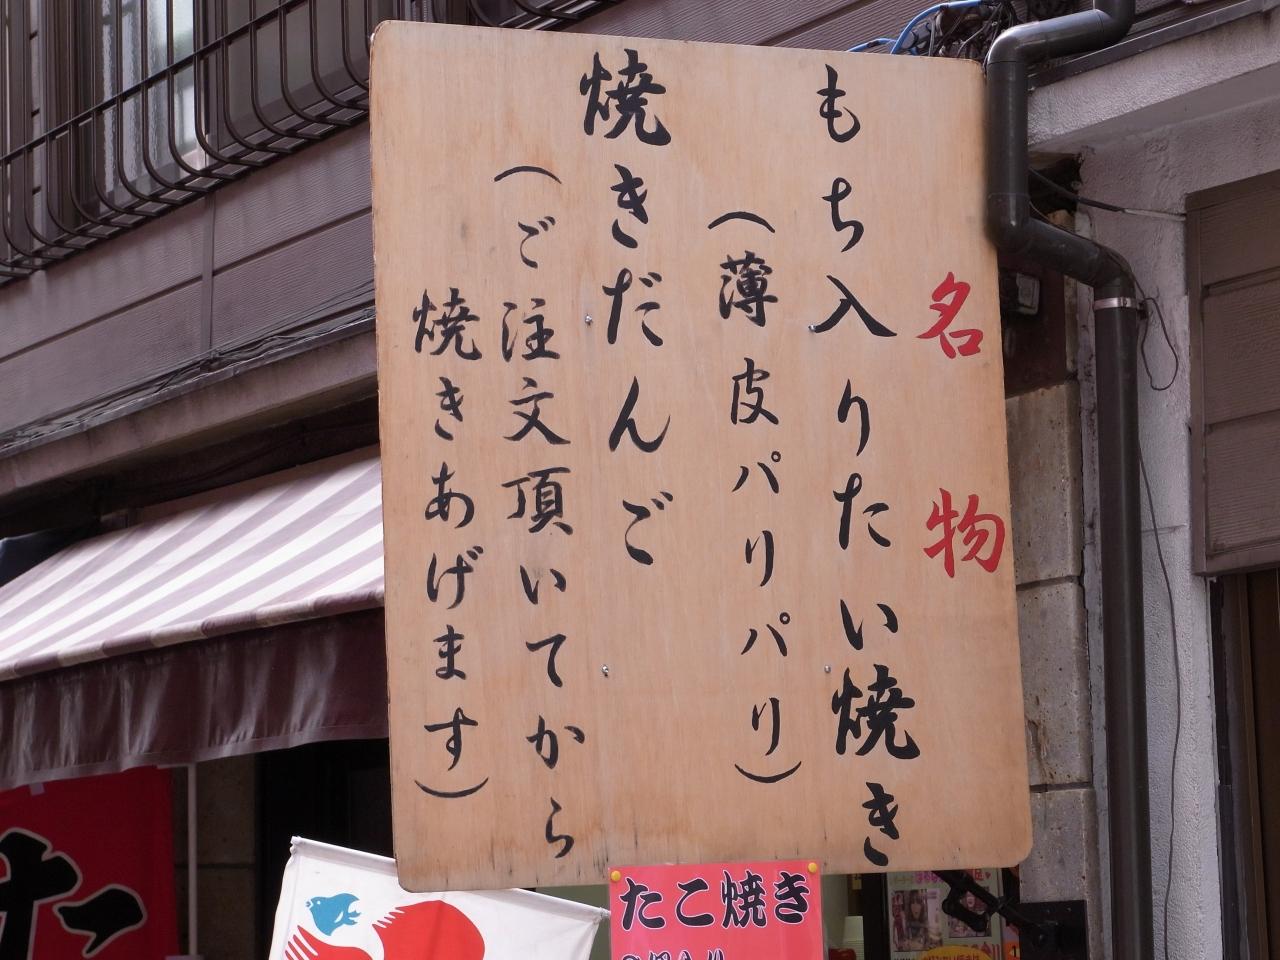 名物
もち入りたい焼き
(薄皮パリパリ)
焼きだんご
(ご注文頂いてから
焼きあげます)
たこ焼き